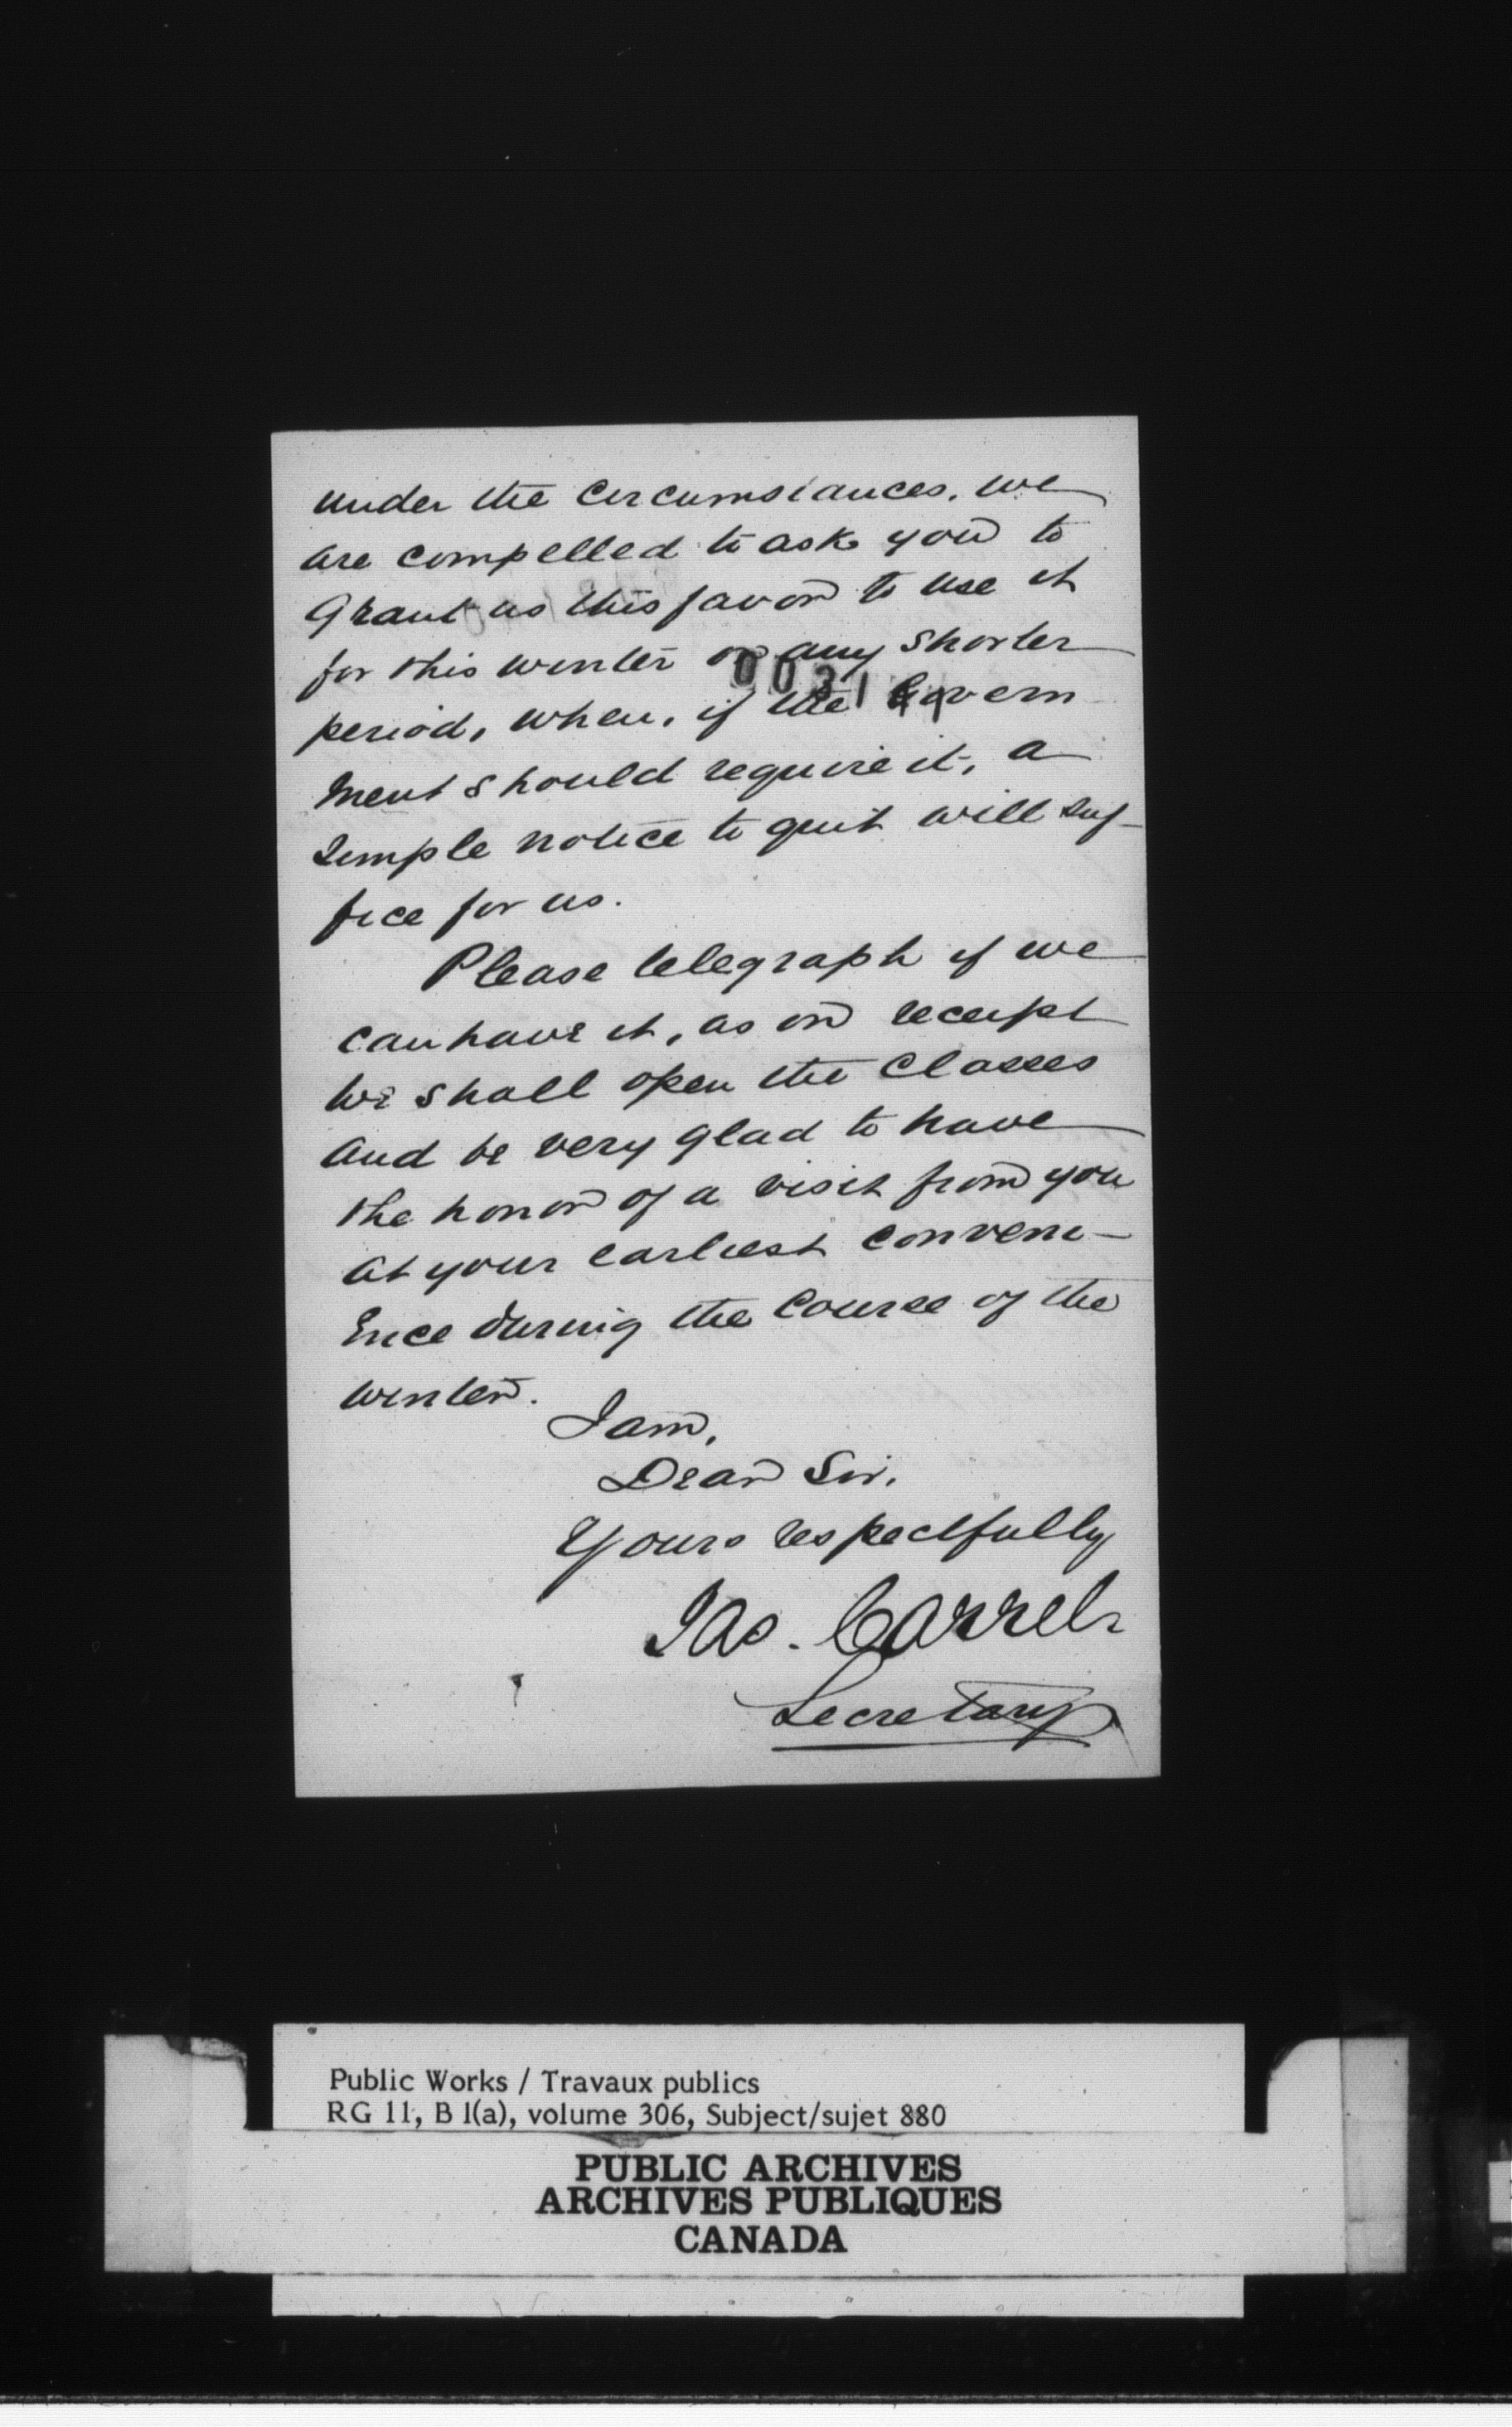 under the circumstances, we
are compelled to ask you to
grant us this favor to use it
for this winter or any shorter
period, when, if the Govern
ment should require it, a
simple notice to quit will suf-
fice for us.
Please telegraph if we
can have it, as on receipt
we shall open the classes
and be very glad to have
the honor of a visit from you
at your earliest conveni-
ence during the course of the
winter.
I am,
Dear Sir,
Yours respectfully
Jas. Carrel
Secretary
Public Works / Travaux publics
RG 11, B 1(a), volume 306, Subject/sujet 880
PUBLIC ARCHIVES
ARCHIVES PUBLIQUES
CANADA